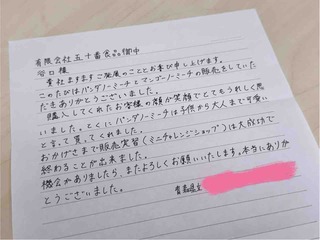 有限会社五十番食品御中
谷口様
貴社ますますご発展のこととお喜び申し上げます。
このたびはパンダノミーチとマンゴーノミーチの販売をしていた
だきありがとうございました。
購入してくれたお客様の顔が笑顔でとてもうれしく思
いました。とくにパンダノミーチは子供から大人まで可愛い
と言って買ってくれました。
おかげさまで販売実習(ミニチャレンジショップ)は大成功で
終わることが出来ました。
機会がありましたら、またよろしくお願いいたします。本当にありが
とうございました。
青森県立